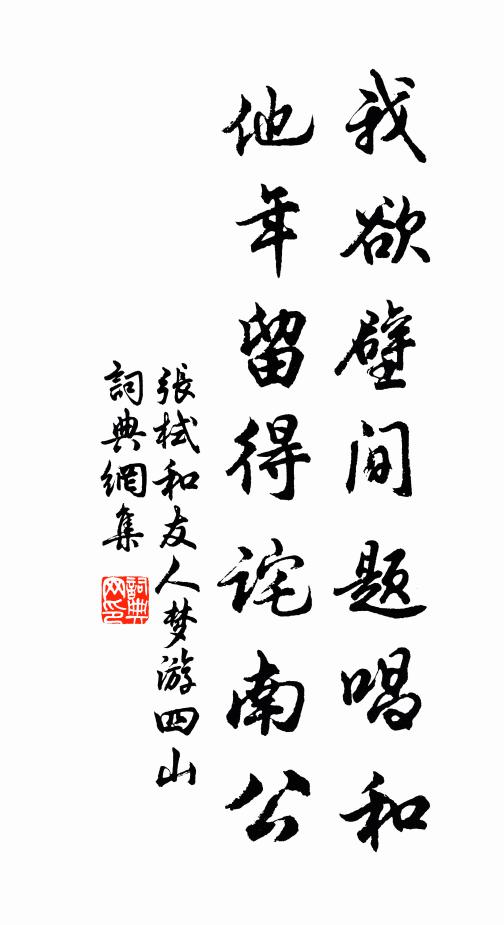 我欲壁间題唱和
他年留得詫南公
張栻和友人梦游四山
詞典網集
詞典網印